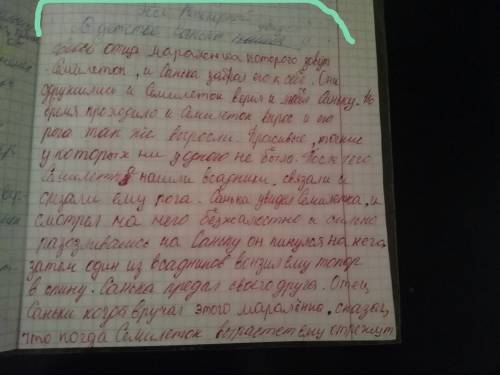 В детстве Санька нашёл у
отца маралёнка которого зовут
Семилеток, и Санька забрал его к себе. Они
сдружились и Семилеток верил и любил Саньку. Но
время проходило и Семилеток вырос и его
рога так же выросли. Красивые, точние
у которых ни у одного не было. После чего
Семилетка нашли всадники, связали и
срезали ему рога. Санька увидел Семилетка, и
смотрел на него безжалостно и сильно
разозлившись на Саньку он кинулся на него
затем один из всадников вонзил ему топор
в спину. Санька предал своего друга. Отец
Саньки когда вручал этого маралёнка, сказал,
что когда Семилеток вырастет ему отрежут